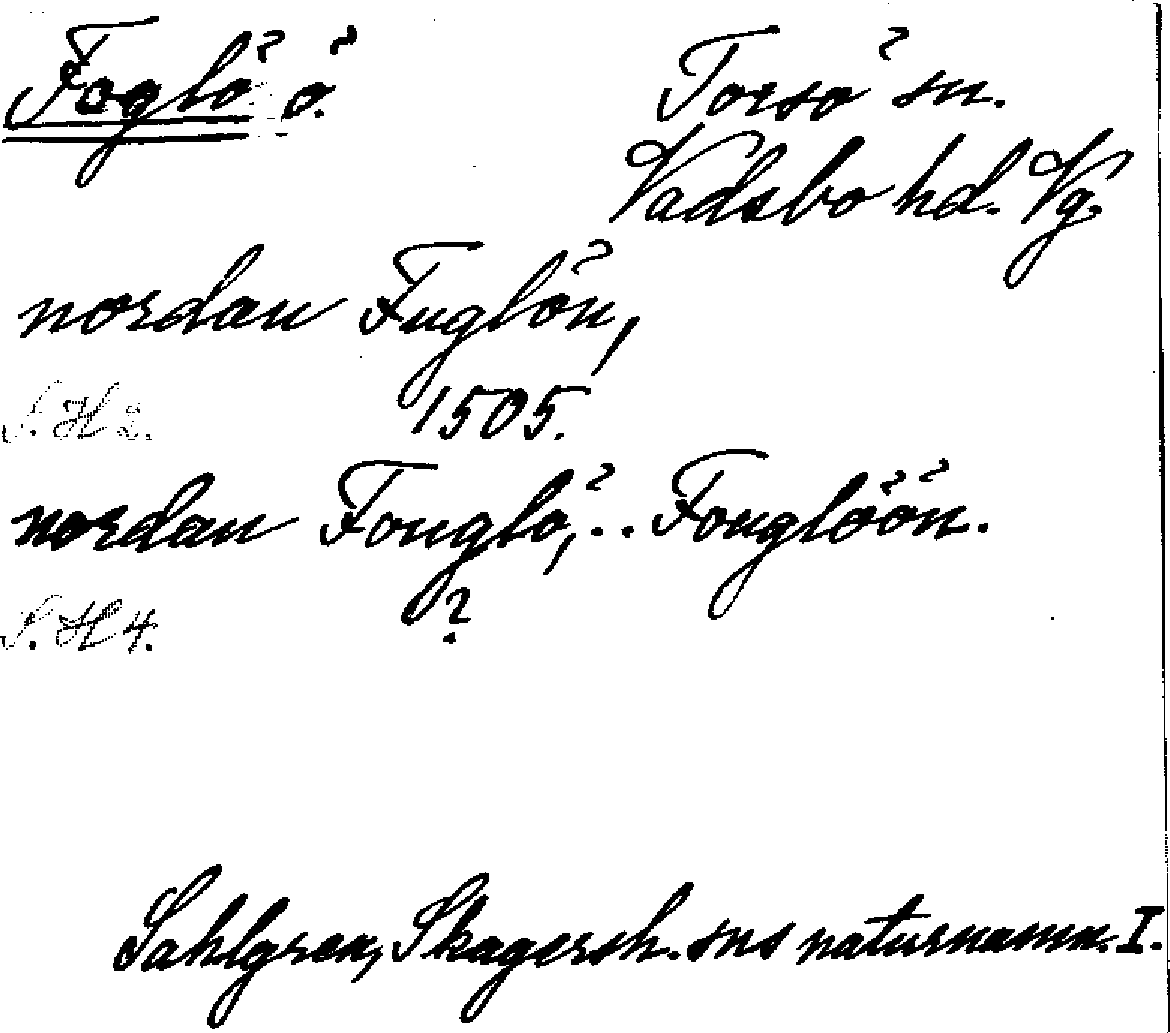 Foglö ö. Torsö sn.
Vadsbo hd. Vg.
nordan Fuglön,
S. H 2. 1505.
nordan Fouglö, .. Fouglöön.
S. H 4. ?
Sahlgren, Skagersh. sns naturnamn. I.